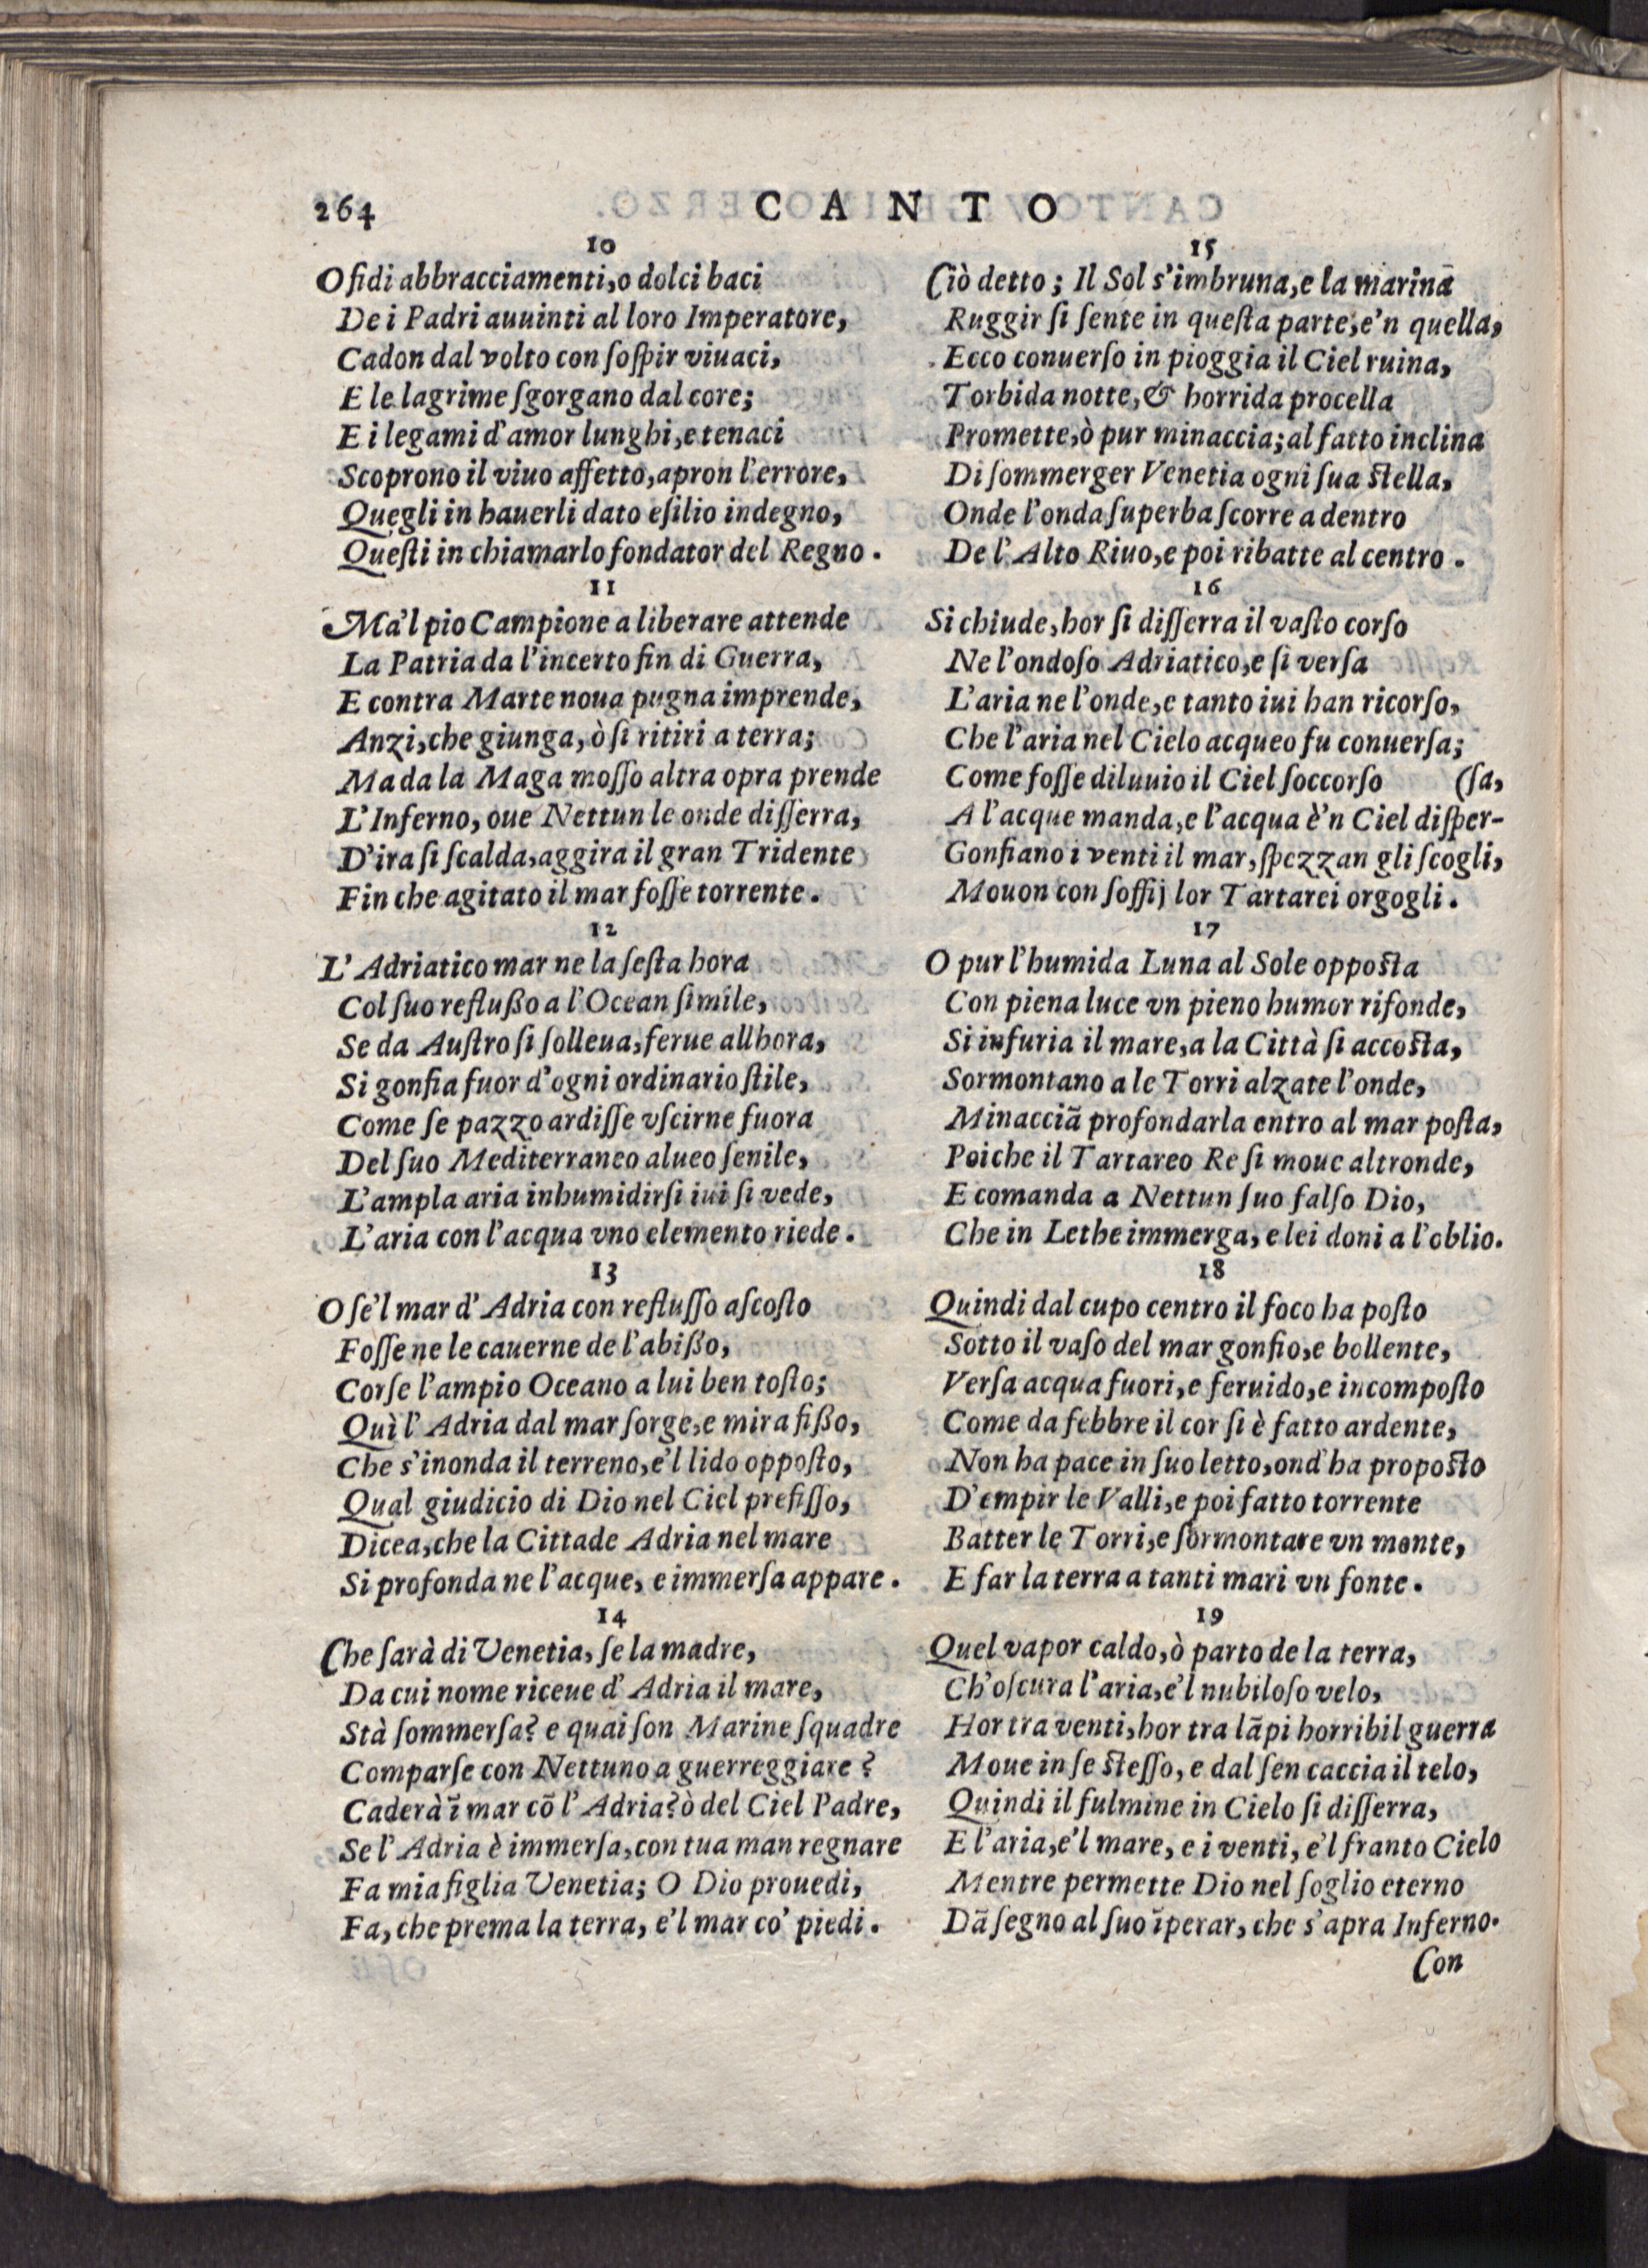 264 CANTO
10
O fidi abbracciamenti, o dolci baci
De i Padri auuinti al loro Imperatore,
Cadon dal volto con ſoſpir viuaci,
E le lagrime ſgorgano dal core;
E i legami d'amor lunghi, e tenaci
Scoprono il viuo affetto, apron l'errore,
Quegli in hauerli dato eſilio indegno,
Queſti in chiamarlo fondator del Regno.
11
Ma'l pio Campione a liberare attende
La Patria da l'incerto fin di Guerra,
E contra Marte noua pugna imprende,
Anzi, che giunga, ò ſi ritiri a terra;
Ma da la Maga moſſo altra opra prende
L'Inferno, oue Nettun le onde diſſerra,
D'ira ſi ſcalda, aggira il gran Tridente
Fin che agitato il mar foſſe torrente.
12
L'Adriatico mar ne la ſeſta hora
Col ſuo refluſſo a l'Ocean ſimile,
Se da Auſtro ſi ſolleua, ferue allhora,
Si gonfia fuor d'ogni ordinario ſtile,
Come ſe pazzo ardiſſe vſcirne fuora
Del ſuo Mediterraneo alueo ſenile,
L'ampla aria inhumidirſi iui ſi vede,
L'aria con l'acqua vno elemento riede.
13
O ſe'l mar d'Adria con refluſſo aſcoſto
Foſſe ne le cauerne de l'abiſſo,
Corſe l'ampio Oceano a lui ben toſto;
Quì l'Adria dal mar ſorge, e mira fiſſo,
Che s'inonda il terreno, e'l lido oppoſto,
Qual giudicio di Dio nel Ciel prefiſſo,
Dicea, che la Cittade Adria nel mare
Si profonda ne l'acque, e immerſa appare.
14
Che ſarà di Venetia, ſe la madre,
Da cui nome riceue d'Adria il mare,
Stà ſommerſa? e quai ſon Marine ſquadre
Comparſe con Nettuno a guerreggiare?
Caderà ĩ mar cõ l'Adria? ò del Ciel Padre,
Se l'Adria è immerſa, con tua man regnare
Fa mia figlia Venetia; O Dio prouedi,
Fa, che prema la terra, e'l mar co' piedi.
15
Ciò detto; Il Sol s'imbruna, e la marina
Ruggir ſi ſente in queſta parte, e'n quella,
Ecco conuerſo in pioggia il Ciel ruina,
Torbida notte, & horrida procella
Promette, ò pur minaccia; al fatto inclina
Di ſommerger Venetia ogni ſua ſtella,
Onde l'onda ſuperba ſcorre a dentro
De l'Alto Riuo, e poi ribatte al centro.
16
Si chiude, hor ſi diſſerra il vaſto corſo
Ne l'ondoſo Adriatico, e ſi verſa
L'aria ne l'onde, e tanto iui han ricorſo,
Che l'aria nel Cielo acqueo fu conuerſa;
Come foſſe diluuio il Ciel ſoccorſo (ſa,
A l'acque manda, e l'acqua è'n Ciel diſper-
Gonfiano i venti il mar, ſpezzan gli ſcogli,
Mouon con ſoffij lor Tartarei orgogli.
17
O pur l'humida Luna al Sole oppoſta
Con piena luce vn pieno humor rifonde,
Si infuria il mare, a la Città ſi accoſta,
Sormontano a le Torri alzate l'onde,
Minacciã profondarla entro al mar poſta,
Poiche il Tartareo Re ſi moue altronde,
E comanda a Nettun ſuo falſo Dio,
Che in Lethe immerga, e lei doni a l'oblio.
18
Quindi dal cupo centro il foco ha poſto
Sotto il vaſo del mar gonfio, e bollente,
Verſa acqua fuori, e feruido, e incompoſto
Come da febbre il cor ſi è fatto ardente,
Non ha pace in ſuo letto, ond'ha propoſto
D'empir le Valli, e poi fatto torrente
Batter le Torri, e ſormontare vn monte,
E far la terra a tanti mari vn fonte.
19
Quel vapor caldo, ò parto de la terra,
Ch'oſcura l'aria, e'l nubiloſo velo,
Hor tra venti, hor tra lãpi horribil guerra
Moue in ſe ſteſſo, e dal ſen caccia il telo,
Quindi il fulmine in Cielo ſi diſſerra,
E l'aria, e'l mare, e i venti, e'l franto Cielo
Mentre permette Dio nel ſoglio eterno
Dã ſegno al ſuo ĩperar, che s'apra Inferno.
Con